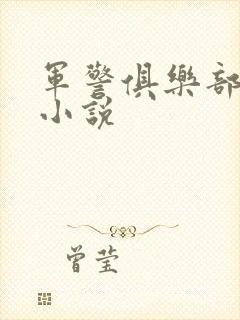 軍警俱樂部
小說
曾莹